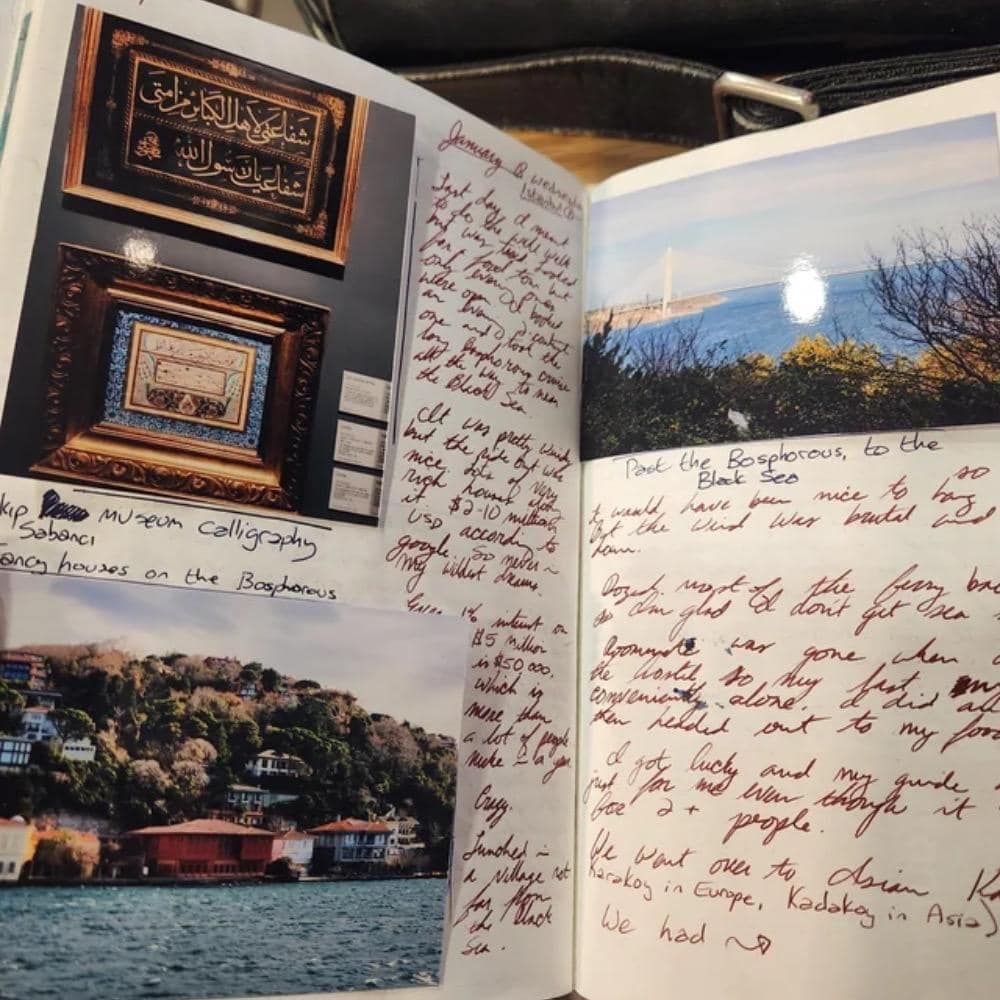 شفاعتي لأهل الكبائر من امتي
شفاعت يا رسول الله
January 8 Wednesday
Istanbul
Last day I meant
to do the
but was
for a food tour but
only evening ones
were open. I booked
an evening
one and took the
long Bosphorous cruise
all the way to near
the Black Sea.
It was pretty windy
but the ride out was
nice. Lots of very
rich houses along
it. $2-10 million
USD according to
google. So never in
my wildest dreams.
1% interest on
$5 million
is $50 000.
which is
more than
a lot of people
make in a year
Crazy.
Lunched in
a village not
far from
the Black
Sea.
kıp Museum Calligraphy
Sabancı
Fancy houses on the Bosphorous
Past the Bosphorous, to the
Black Sea
so
t would have been nice to
but the wind was brutal and
down.
Dozed most of the ferry
so I'm glad I don't get sea
Roommate was gone when
the hostel so my fast
conveniently alone. I did
then headed out to my food
I got lucky and my guide
just for me even though it
for 2+ people.
We went over to Asian
Karakoy in Europe, Kadakoy in Asia)
We had